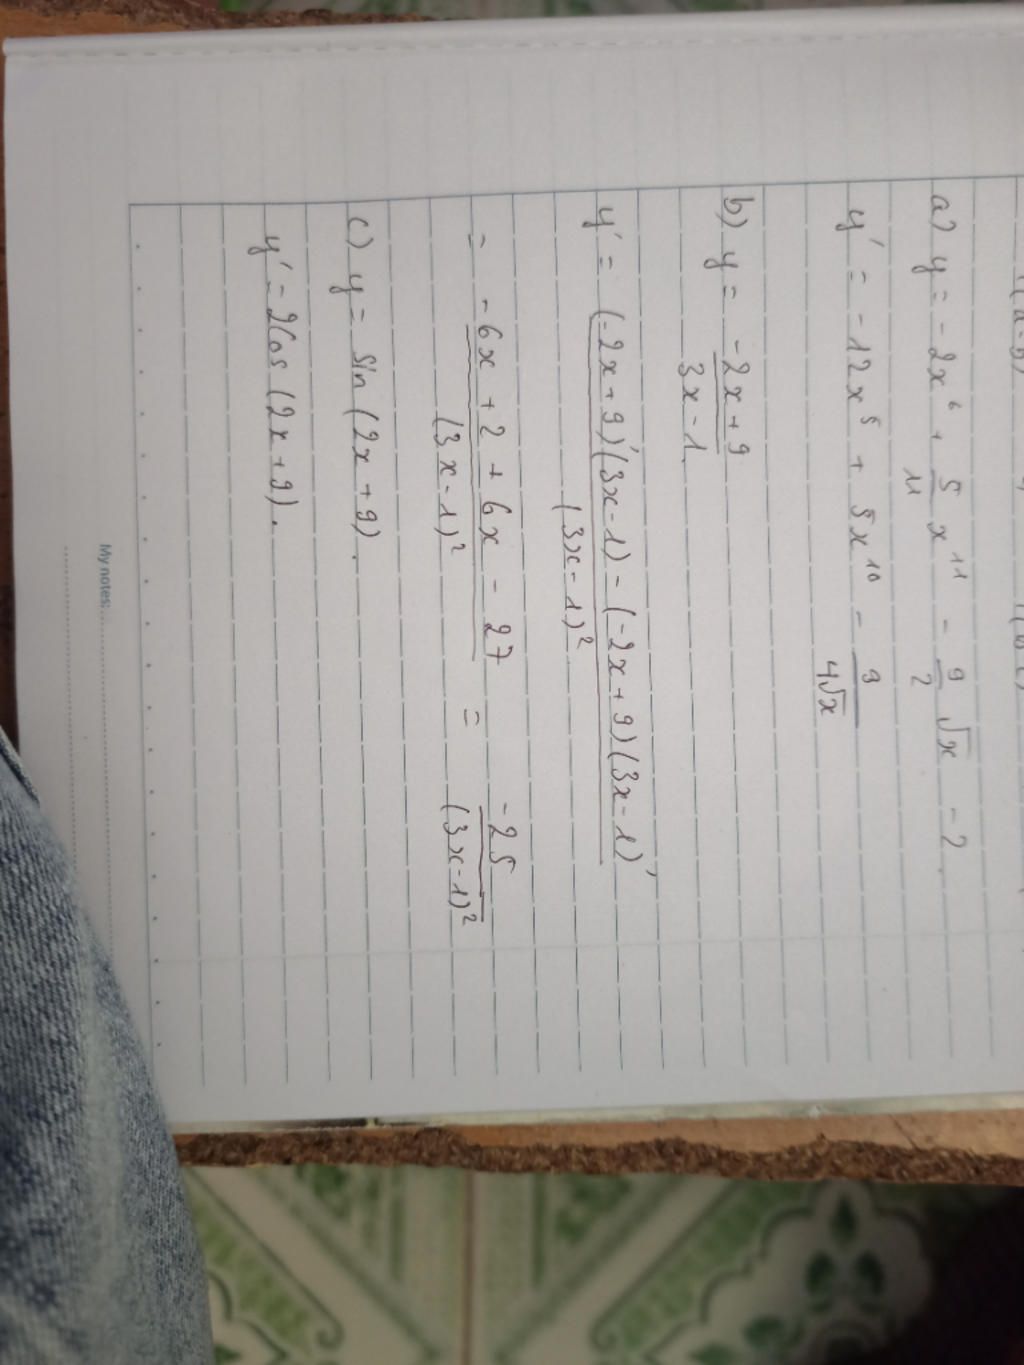 a) y = -2x⁶ + 5/11 x¹¹ - 9/2 √x - 2
y' = -12x⁵ + 5x¹⁰ - 9/4√x
b) y = -2x+9/3x-1
y' = (-2x+9)'(3x-1) - (-2x+9)(3x-1)'/(3x-1)²
= -6x+2+6x-27/(3x-1)² = -25/(3x-1)²
c) y = sin(2x+9).
y' = 2cos(2x+9).
My notes: